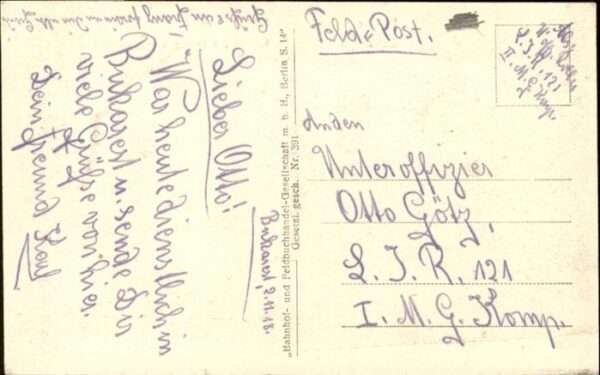 Bukarest, 2.11.18.
Lieber Otto!
War heute dienstlich in
Bukarest u. sende Dir
viele Grüße von hier.
Dein Freund Karl
Grüße an Franz
"Bahnhof- und Feldbuchhandel-Gesellschaft m. b. H., Berlin S. 14"
Gesetzl. gesch. Nr. 391
Feld-Post.
L. J. R. 121
I. M. G. Komp.
An den
Unteroffizier
Otto Götz,
L. J. R. 121
I. M. G. Komp.